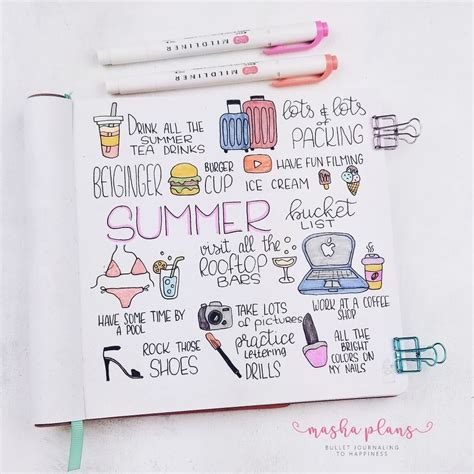 MILDLINER
MILDLINER
DRINK ALL THE
SUMMER
TEA DRINKS
lots & lots
of
PACKING
BEIGINGER
BURGER
CUP
HAVE FUN FILMING
ICE CREAM
SUMMER
bucket
LIST
visit all the
ROOFTOP
BARS
HAVE SOME TIME BY
A POOL
TAKE LOTS
of pictures
WORK AT A COFFEE
SHOP
ROCK THOSE
SHOES
practice
lettering
DRILLS
ALL THE
BRIGHT
COLORS ON
MY NAILS
masha plans
BULLET JOURNALING
TO HAPPINESS